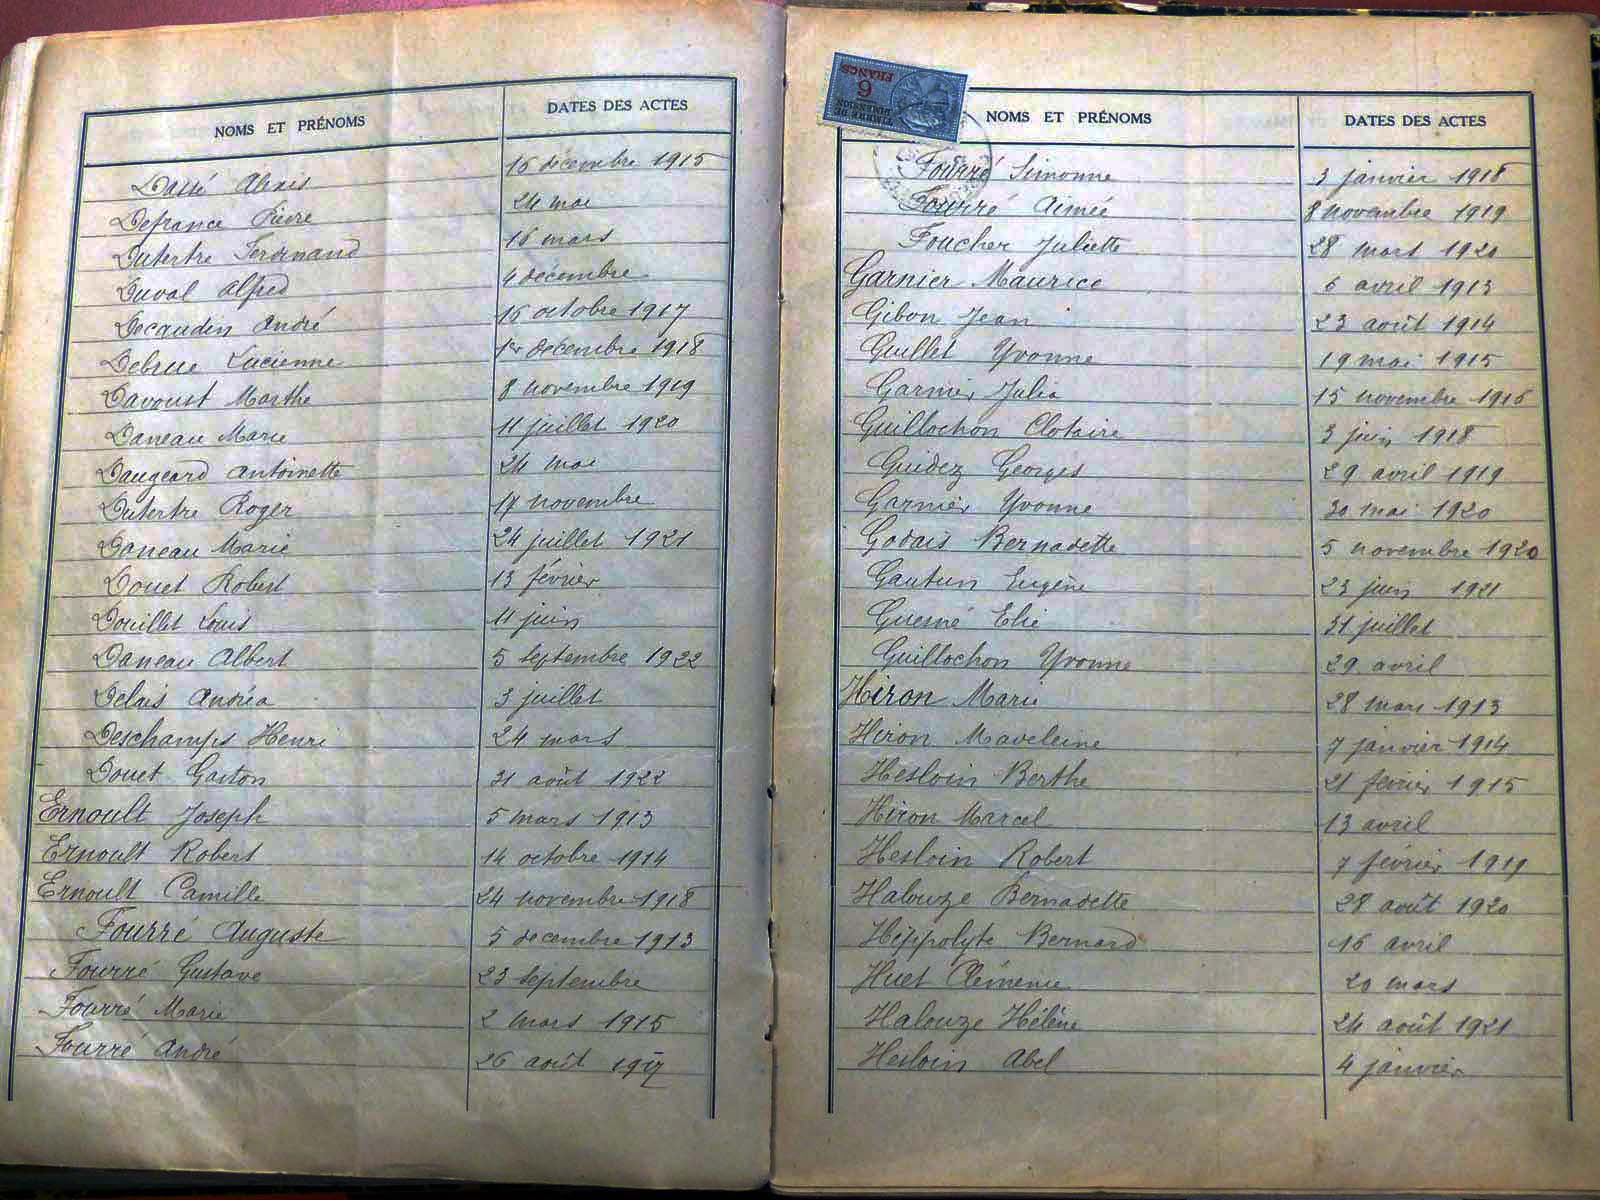 NOMS ET PRÉNOMS DATES DES ACTES
Dassé Alexis 16 décembre 1915
Defrance Pierre 24 mai
Dutertre Ferdinand 16 mars
Duval Alfred 4 décembre
Decaudin André 16 octobre 1917
Debrue Lucienne 1er décembre 1918
Davoust Marthe 8 novembre 1919
Daneau Marie 11 juillet 1920
Daugeard Antoinette 24 mai
Dutertre Roger 17 novembre
Daneau Marie 24 juillet 1921
Douet Robert 13 février
Douillet Louis 11 juin
Daneau Albert 5 septembre 1922
Delais Andréa 3 juillet
Deschamps Henri 24 mars
Douet Gaston 31 août 1922
Ernoult Joseph 5 mars 1913
Ernoult Robert 14 octobre 1914
Ernoult Camille 24 novembre 1918
Fourré Auguste 5 decembre 1913
Fourré Gustave 23 septembre
Fourré Marie 2 mars 1915
Fourré André 26 août 1917
TIMBRE DE DIMENSION
6
FRANCS
NOMS ET PRÉNOMS DATES DES ACTES
Fourré Simonne 3 janvier 1918
Fourré Aimée 8 novembre 1919
Foucher Juliette 28 mars 1920
Garnier Maurice 6 avril 1913
Gibon Jean 23 août 1914
Guillet Yvonne 19 mai 1915
Garnier Julia 15 novembre 1916
Guillochon Clotaire 3 juin 1918
Guidez Georges 29 avril 1919
Garnier Yvonne 30 mai 1920
Godais Bernadette 5 novembre 1920
Gautun Eugène 23 juin 1921
Guesné Elie 31 juillet
Guillochon Yvonne 29 avril
Hiron Marie 28 mars 1913
Hiron Maveleine 7 janvier 1914
Hesloin Berthe 21 février 1915
Hiron Marcel 13 avril
Hesloin Robert 7 février 1919
Halouze Bernadette 28 août 1920
Hippolyte Bernard 16 avril
Huet Clémence 20 mars
Halouze Hélène 24 août 1921
Hesloin Abel 4 janvier